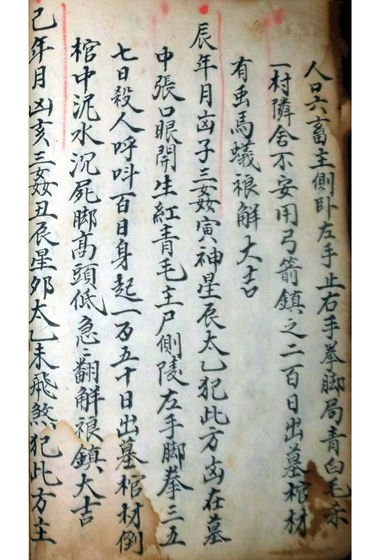 人口六畜主側卧左手止右手拳脚局青白毛示
一村隣舍不安用弓箭鎮之二百日出墓棺材
有虫馬蟻禳解大吉
辰年月凶子三姦寅神星辰太乙犯此方凶在墓
申張口眼開生紅青毛主尸側陵左手脚拳三五
七日殺人呼呌百日身起一百五十日出墓棺材倒
棺中泥水沉死脚高頭低急〻翻解禳鎮大吉
己年月凶亥三姦丑辰星卯太乙未飛煞犯此方主